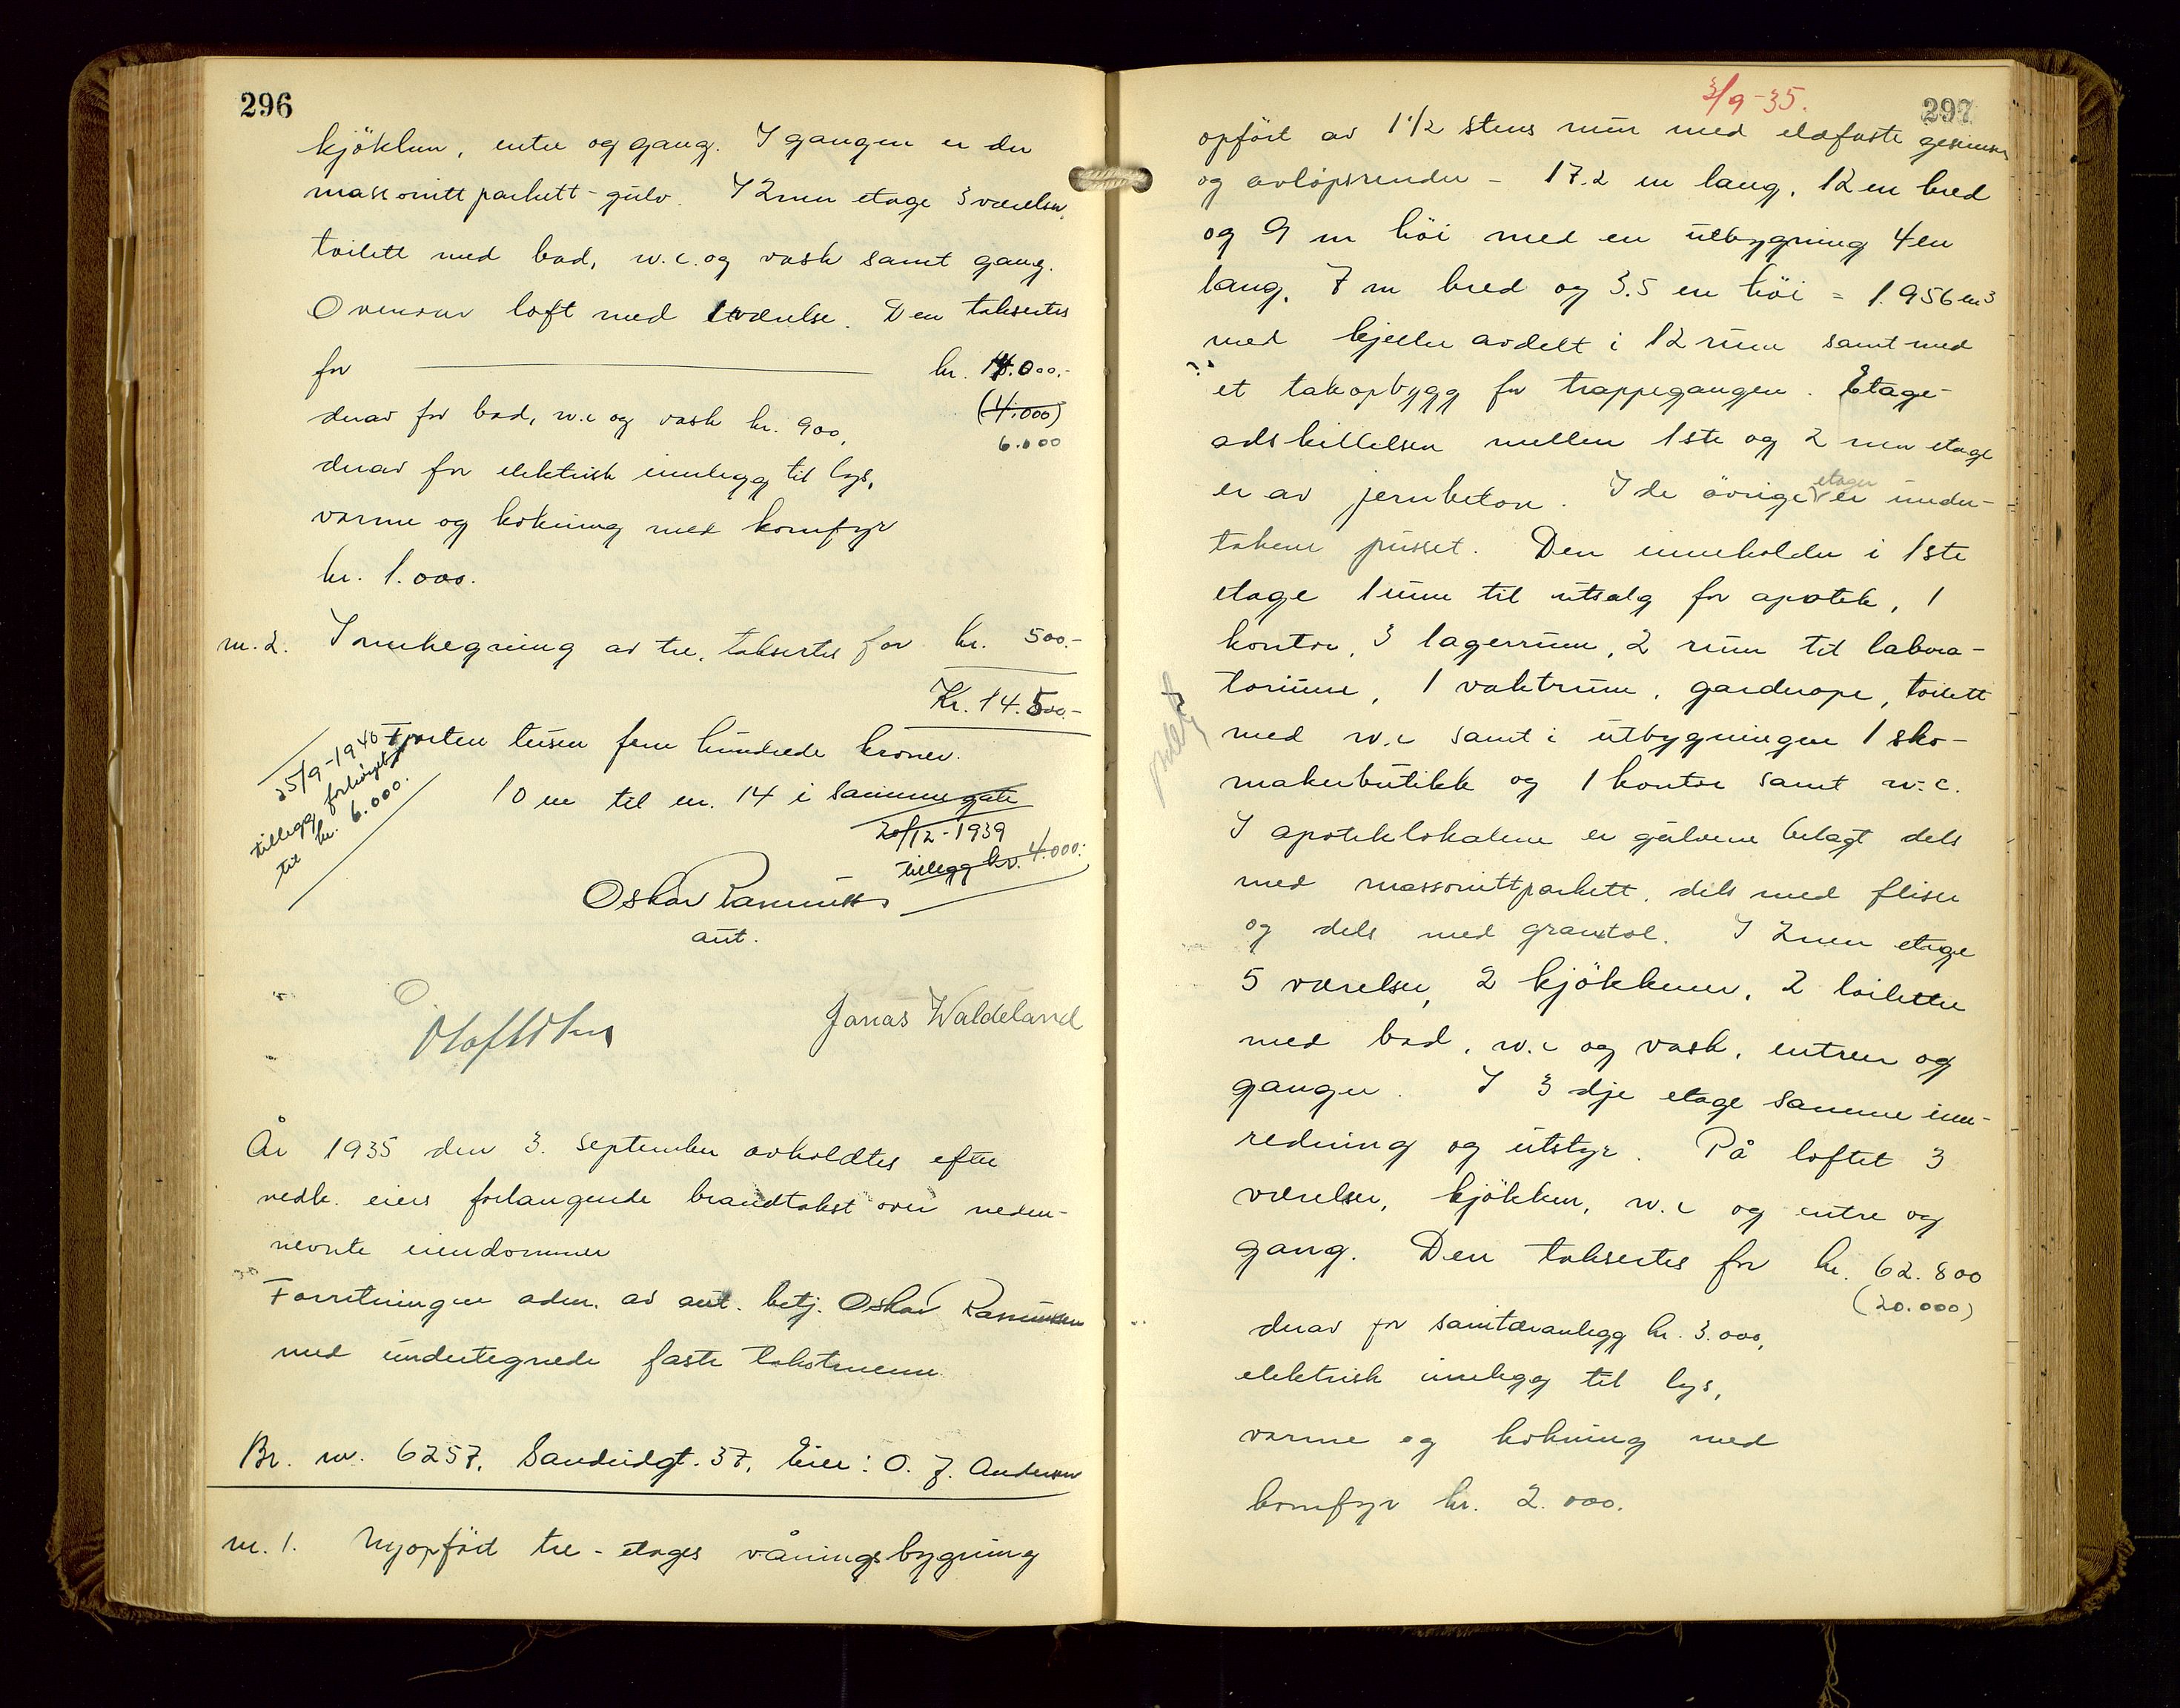 296
kjökken, entre og gang. I gangen er der
massonitt parkett-gulv. I 2nen etage 3 værelser,
toilett med bad, w.c. og vask samt gang.
Ovenour loft med 1 værelse. Den taksertes
for kr. 14.000.-
derav for bad, w.c og vask kr. 900, (4.000)
6.000
derav for elektrisk innlegg til lys,
varme og kokning med komfyr
kr. 1.000.
nr. 2. Innhegning av tre, taksertes for kr. 500.-
Kr. 14.500.-
Fjorten tusen fem hundrede kroner.
25/9-1940
tillegg forhöyet
til kr. 6.000.
10 m til nr. 14 i samme gate
20/12-1939
tillegg kr. 4.000:
Oskar Rasmussen
aut.
Jonas Waldeland
År 1935 den 3. september avholdtes efter
vedk. eiers forlangende brandtakst over neden-
nevnte eiendommer
Forretningen adm. av aut. betj. Oskar Rasmussen
med undertegnede faste takstmenn
Br. nr. 6257. Sandeidgt. 37. Eier: O. J. Andersen
nr. 1. Nyopfört tre-etages våningsbygning
3/9-35.
297
opfört av 1 1/2 stens mur med ildfaste gesimser
og avlöpsrender - 17.2 m lang, 12 m bred
og 9 m höi med en utbygning 4 m
lang, 7 m bred og 3.5 m höi = 1.956 m3
med kjeller avdelt i 12 rum samt med
et takopbygg for trappegangen. Etage-
adskillelsen mellem 1ste og 2nen etage
er av jernbeton. I de övrige etager er under-
takene pusset. Den inneholder i 1ste
etage 1 rum til utsalg for apotek, 1
kontor, 3 lagerrum, 2 rum til labora-
torium, 1 vaktrum, garderope, toilett
med w.c samt i utbygningen 1 sko-
makerbutikk og 1 kontor samt w.c.
I apoteklokalene er gulvene belagt dels
med massonittparkett, dels med fliser
og dels med granitol. I 2nen etage
5 værelser, 2 kjökkener, 2 toiletter
med bad, w.c og vask, entreer og
ganger. I 3dje etage samme inn-
redning og utstyr. På loftet 3
værelser, kjökken, w.c og entre og
gang. Den taksertes for kr. 62.800
(20.000)
derav for sanitæranlegg kr. 3.000,
elektrisk innlegg til lys,
varme og kokning med
komfyr kr. 2.000.